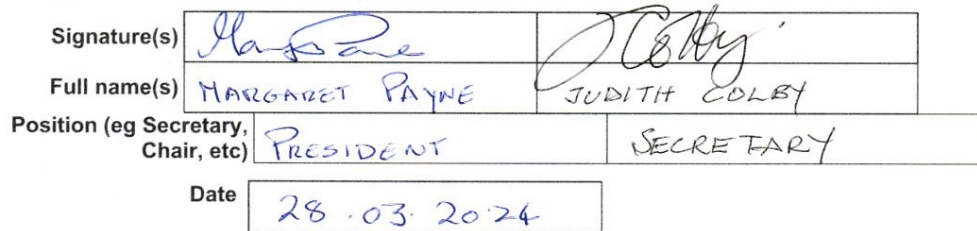 Signature(s) J Colby
Full name(s) MARGARET PAYNE JUDITH COLBY
Position (eg Secretary,
Chair, etc) PRESIDENT SECRETARY
Date 28.03.2024